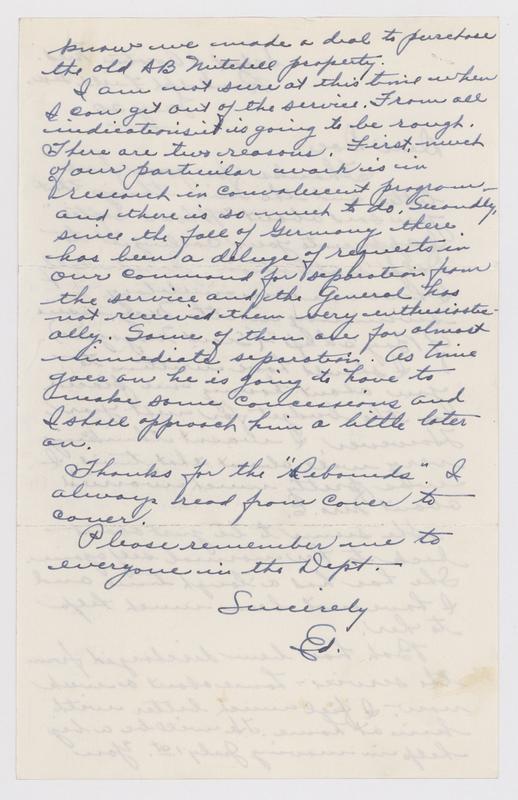 know we made a deal to purchase
the old AB Mitchell property.
I am not sure at this time when
I can get out of the service. From all
indications it is going to be rough.
There are two reasons. First, much
of our particular work is in
research in convalescent program,
and there is so much to do. Secondly,
since the fall of Germany there
has been a deluge of requests in
our command for separation from
the service and the General has
not received them very enthusiastic-
ally. Some of them are for almost
immediate separation. As time
goes on he is going to have to
make some concessions and
I shall approach him a little later
on.
Thanks for the "Rebounds". I
always read from cover to
cover.
Please remember me to
everyone in the Dept.
Sincerely
Ed.